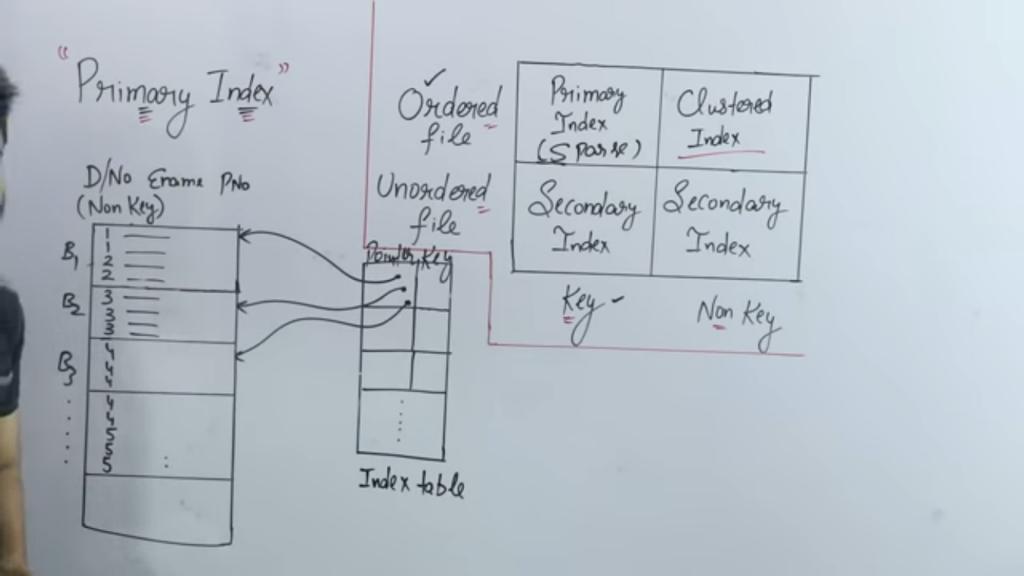 "Primary Index"
D/No Ename PNo
(Non Key)
B1
1
1
2
2
B2
3
3
3
B3
4
4
4
4
4
5
5
5
Pointer Key
Index table
Ordered file
Unordered file
Primary Index (Sparse)
Clustered Index
Secondary Index
Secondary Index
Key
Non Key